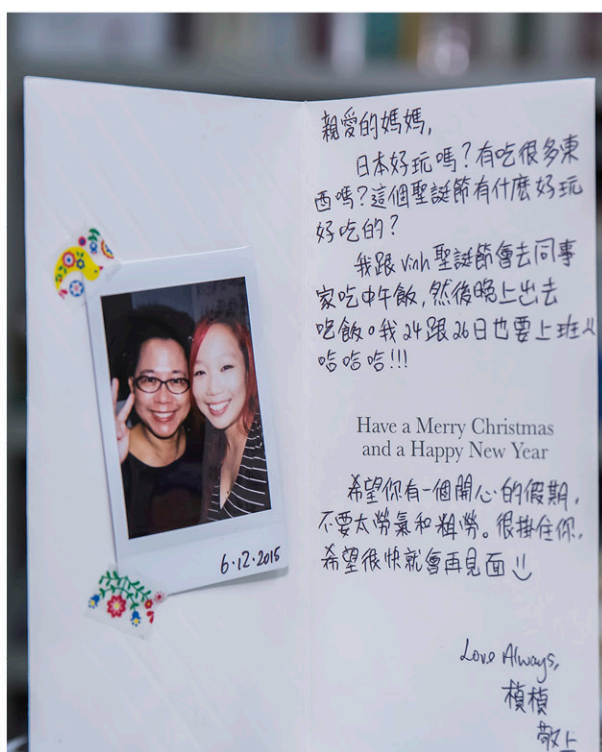 親愛的媽媽,
日本好玩嗎?有吃很多東
西嗎?這個聖誕節有什麼好玩
好吃的?
我跟 Vinh 聖誕節會去同事
家吃中午飯,然後晚上出去
吃飯。我24跟26日也要上班
哈哈哈!!!
Have a Merry Christmas
and a Happy New Year
希望你有一個開心的假期,
不要太勞氣和粗勞。很掛住你,
希望很快就會再見面
Love Always,
楨楨
敬上
6·12·2015